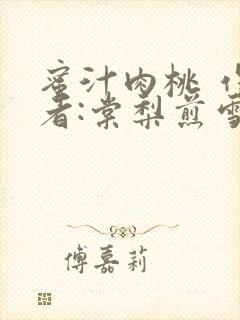 蜜汁肉桃 作
者:棠梨煎雪
傅嘉莉